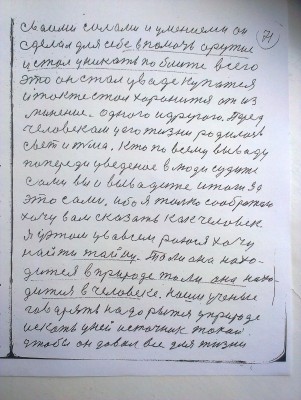 своими силами и умением он 71
сделал для себе в помочь орутие
и стал уникать по биште всего
это он стал у ваде купатся
и токте стал харонится от из
минение. одного и другого. Перед
человекам у его жизни родилось
свет и тма. Кто по всему вываду
попереди уведение в люди судите
сами вы и вывадите итоги за
это сами, ибо я только сообрткою
хочу вам сказать как человек.
я у этом у всем ра хочу
найти тайну. То ли она нахо-
дится в природе то ли она нахо-
дится в человеке. Наши ученые
гаварять надо рытся у природе
искать у ней источник такой.
чтобы он довал все для жизни